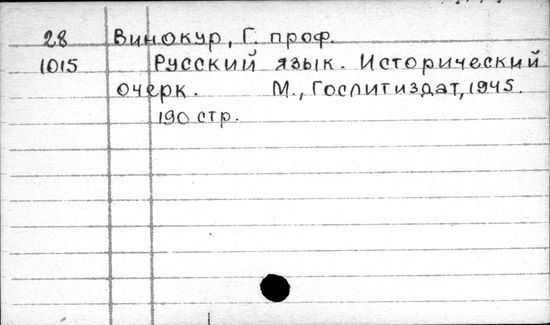 28 Винокур, Г. проф.
1015 Русский язык. Исторический
очерк. М., Гослитиздат, 1945.
190 стр.